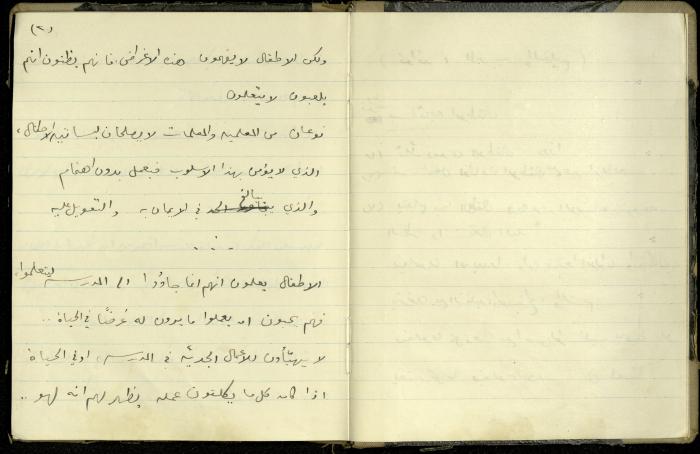 (٢)
ولكن الاطفال لا يفهمون هذه الاغراض، فانهم يظنون انهم
يلعبون لا يتعلمون
نوعان من المعلمين والمعلمات لا يصلحان لبساتين الاطفال،
الذي لا يؤمن بهذا الاسلوب فيعمل بدون اهتمام
والذي يبالغ في الايمان به والتعويل عليه
. . .
الاطفال يعلمون انهم انما جاؤوا الى المدرسه ليتعلموا،
فهم يحبون ان يعملوا ما يرون له غرضًا في الحياة ..
لا يتهيّأون للاعمال الجدية في المدرسه، او في الحياة
اذا كان كل ما يكلفون عمله يظهر لهم انه لهو ..